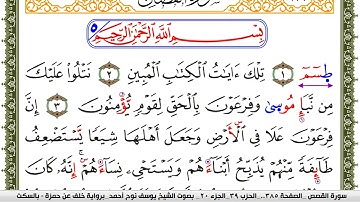 بِسْمِ ٱللَّهِ ٱلرَّحْمَٰنِ ٱلرَّحِيمِ
طسٓمٓ ١ تِلْكَ ءَايَٰتُ ٱلْكِتَٰبِ ٱلْمُبِينِ ٢ نَتْلُوا۟ عَلَيْكَ
مِن نَّبَإِ مُوسَىٰ وَفِرْعَوْنَ بِٱلْحَقِّ لِقَوْمٍ يُؤْمِنُونَ ٣ إِنَّ
فِرْعَوْنَ عَلَا فِى ٱلْأَرْضِ وَجَعَلَ أَهْلَهَا شِيَعًا يَسْتَضْعِفُ
طَآئِفَةً مِّنْهُمْ يُذَبِّحُ أَبْنَآءَهُمْ وَيَسْتَحْىِۦ نِسَآءَهُمْ إِنَّهُۥ كَانَ
سورة القصص _ الصفحة ٣٨٥ _ الحزب ٣٩ _ الجزء ٢٠ _ بصوت الشيخ يوسف نوح أحمد _ برواية خلف عن حمزة - بالسكت